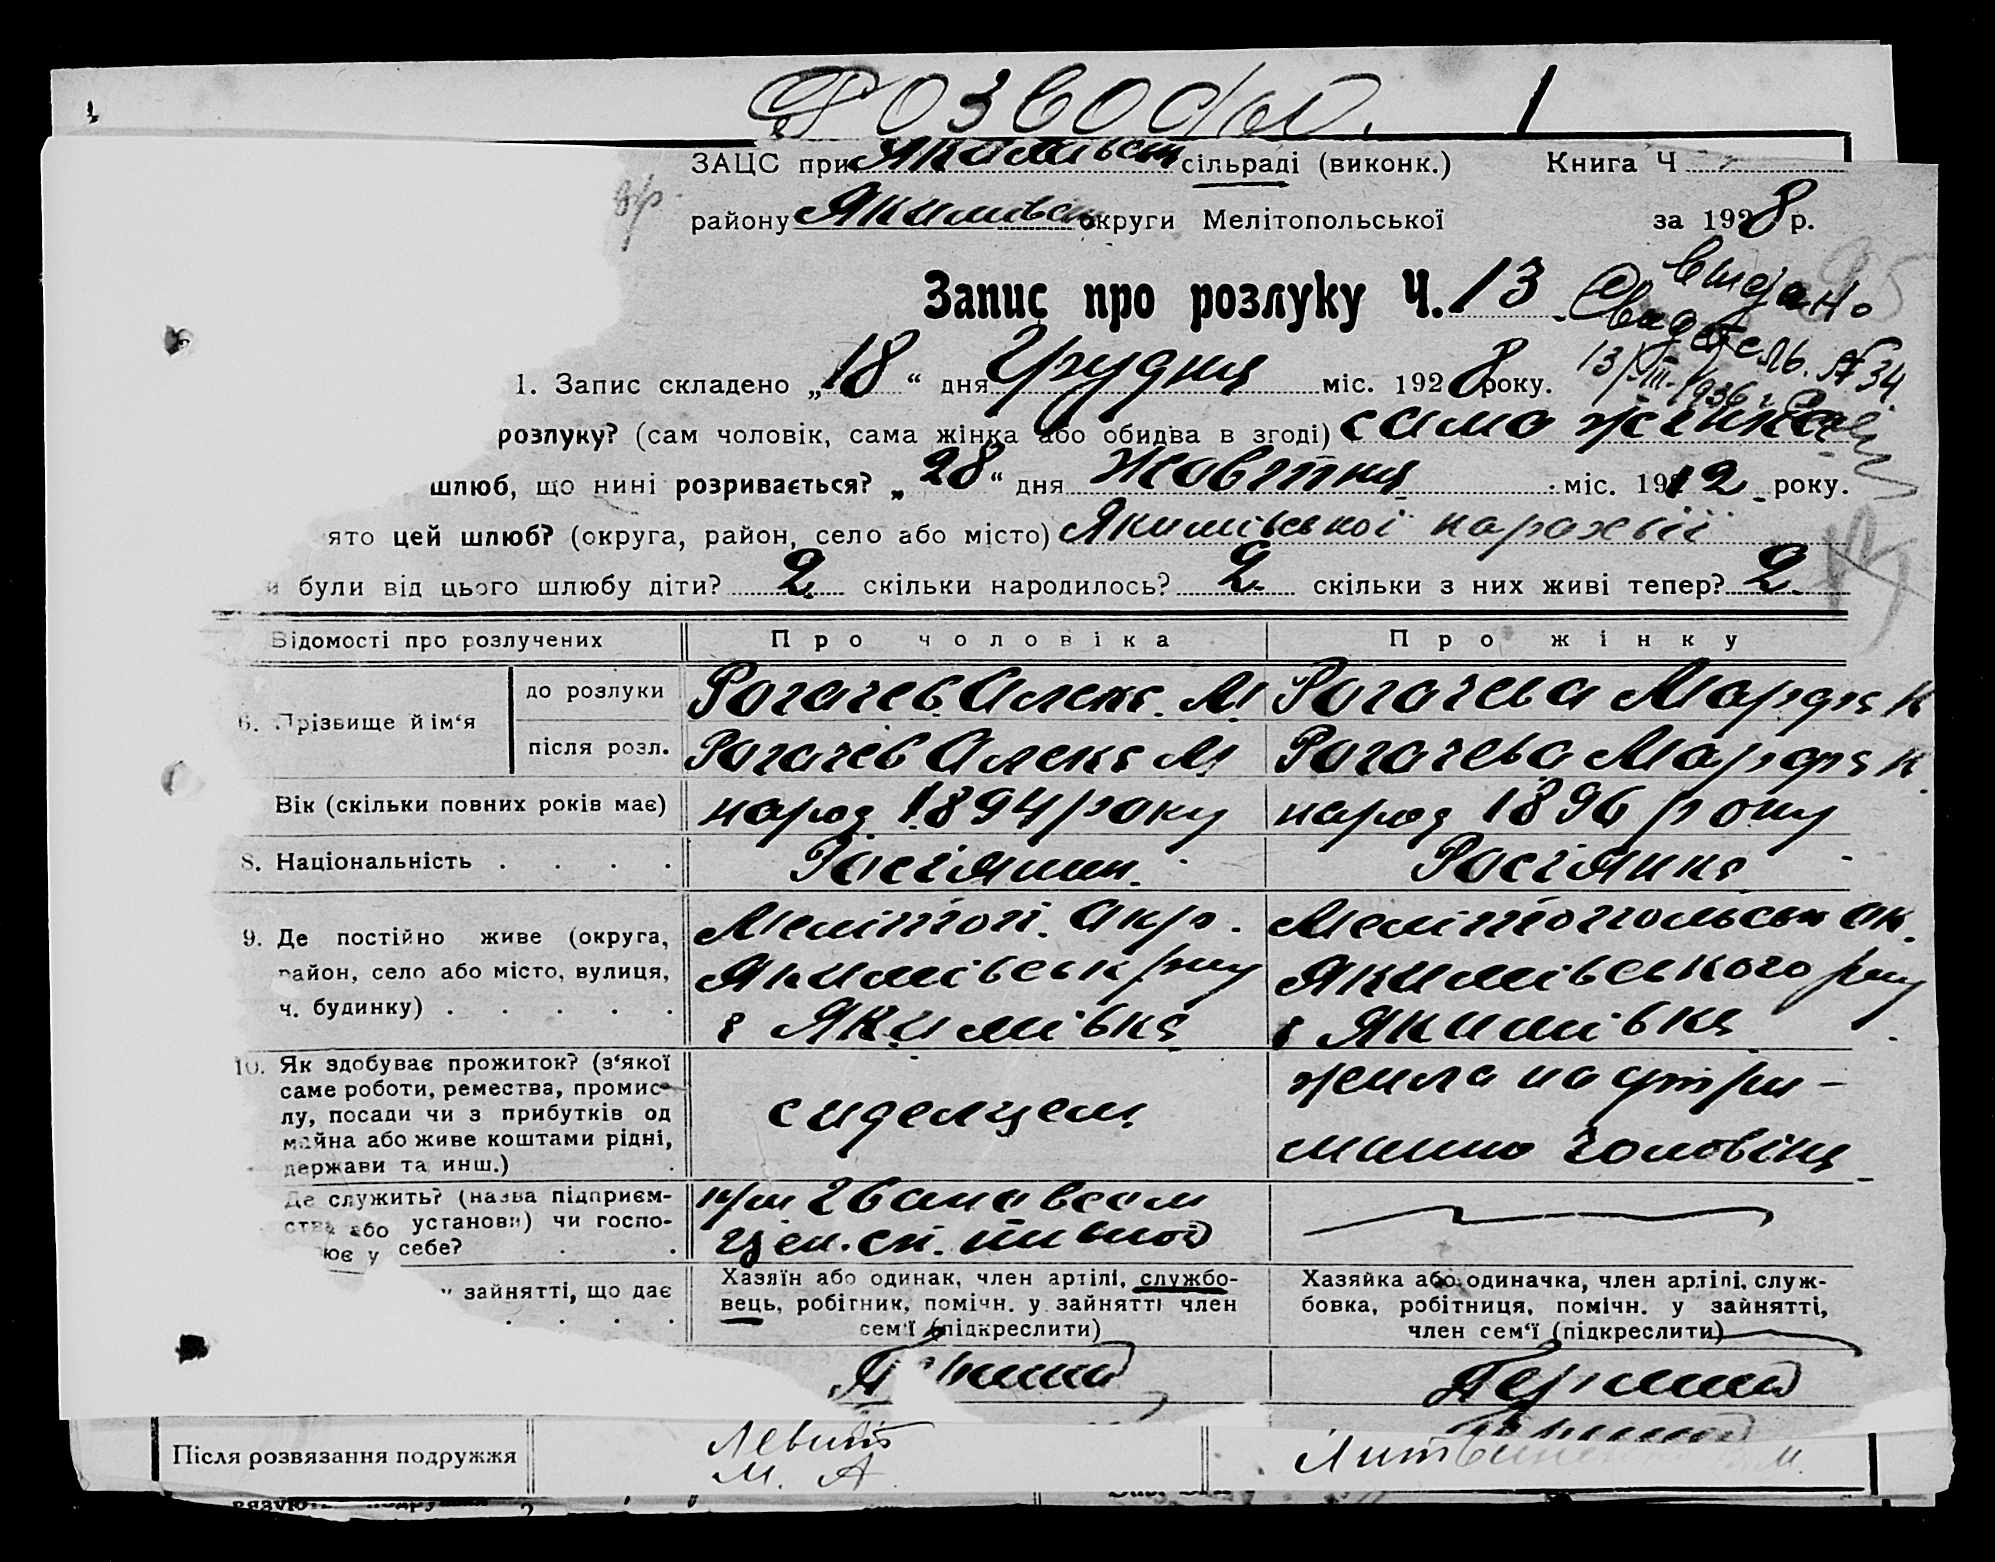 Розводы. 1
ЗАЦС при Якимівськ сільраді (виконк.) Книга Ч
району Якимівськ округи Мелітопольської за 1928 р.
Запис про розлуку Ч. 13
видано
Свидетель. № 34
13/III-1936 г.
1. Запис складено „18“ дня Грудня міс. 1928 року.
розлуку? (сам чоловік, сама жінка або обидва в згоді) сама жінка
шлюб, що нині розривається? „28“ дня Жовтня міс. 1912 року.
ято цей шлюб? (округа, район, село або місто) Якимівської парахвії
и були від цього шлюбу діти? 2 скільки народилось? 2 скільки з них живі тепер? 2
Відомості про розлучених Про чоловіка Про жінку
6. Прізвище й ім‘я до розлуки Рогачев Алекс. М Рогачева Марфа К
після розл. Рогачев Алекс М Рогачева Марфа К
Вік (скільки повних років має) народ 1894 року народ 1896 року
8. Національність Росіянин. Росіянка
9. Де постійно живе (округа, Меліпоп. Окр. Мелітопольськ ок.
район, село або місто, вулиця, Якимівськ р-ну Якимівського р-ну
ч. будинку) с Якимівка с Якимівка
10. Як здобуває прожиток? (з‘якої жила на утри-
саме роботи, ремества, промис-
лу, посади чи з прибутків од сиделцем
майна або живе коштами рідні, манню чоловіка
держави та инш.)
Де служить? (назва підприєм-
ства або установи) чи госпо-
ює у себе?
у зайнятті, що дає
Хазяїн або одинак, член артілі, службо- Хазяйка або одиначка, член артілі, служ-
вець, робітник, помічн. у зайнятті член бовка, робітниця, помічн. у зайнятті,
сем‘ї (підкреслити) член сем‘ї (підкреслити)
Перший
Після розвязання подружжя Левит
М. А